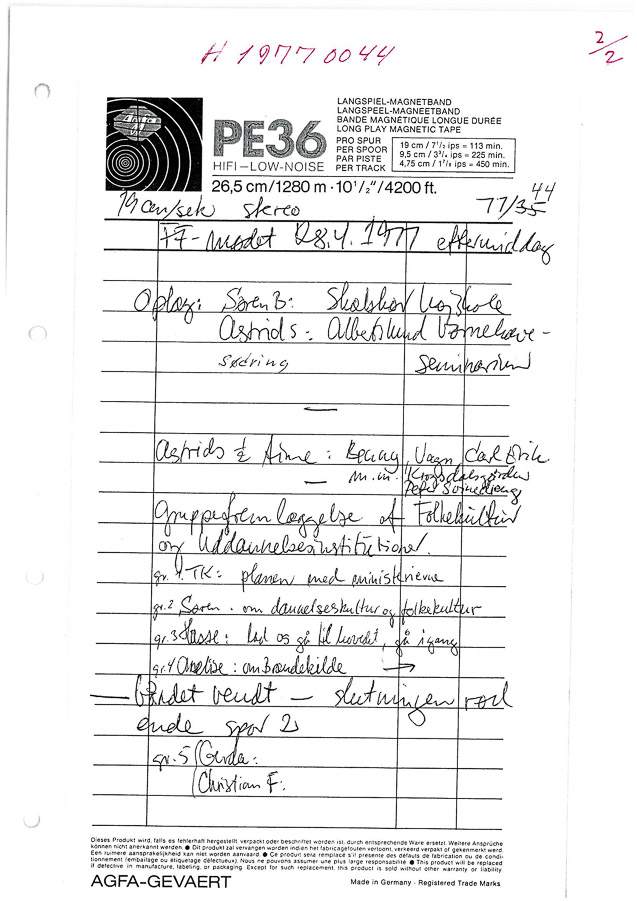 H 19770044
2/2
LANGSPIEL-MAGNETBAND
LANGSPEEL-MAGNEETBAND
BANDE MAGNÉTIQUE LONGUE DURÉE
LONG PLAY MAGNETIC TAPE
PE36
HIFI–LOW-NOISE
PRO SPUR
PER SPOOR
PAR PISTE
PER TRACK
19 cm / 7 1/2 ips = 113 min.
9,5 cm / 3 3/4 ips = 225 min.
4,75 cm / 1 7/8 ips = 450 min.
26,5 cm/1280 m · 10 1/2"/4200 ft.
19 cm/sek stereo 77/35 44
FF-mødet 28.4.1977 eftermiddag
Oplæg: Søren B: Skælskør højskole
Astrids: Albertslund Børnehave-
Sødring seminarium
Astrids 1/2 time: Benny Vagn Carl Erik
m.m. Krogsdalsgården
Peter
Gruppefremlæggelse af Folkekultur
og Uddannelsesinstitutioner.
gr. 1. TK: planen med ministrierne
gr. 2 Søren. om dannelseskultur og folkekultur
gr. 3 Hasse: lad os gå til hovedet, gå igang
gr. 4 Anelise: om Brændekilde →
— båndet vendt — slutningen ved
ende spor 2
gr. 5 Gerda:
Christian F:
Dieses Produkt wird, falls es fehlerhaft hergestellt, verpackt oder beschriftet worden ist, durch entsprechende Ware ersetzt. Weitere Ansprüche
können nicht anerkannt werden. ● Dit produkt zal vervangen worden indien het fabricagefouten vertoont, verkeerd verpakt of gekenmerkt werd.
Een ruimere aansprakelijkheid kan niet worden aanvaard. ● Ce produit sera remplacé s'il présente des défauts de fabrication ou de condi-
tionnement (emballage ou étiquetage défectueux). Nous ne pouvons assumer une plus large responsabilité. ● This product will be replaced
if defective in manufacture, labeling, or packaging. Except for such replacement, this product is sold without other warranty or liability
AGFA-GEVAERT
Made in Germany · Registered Trade Marks